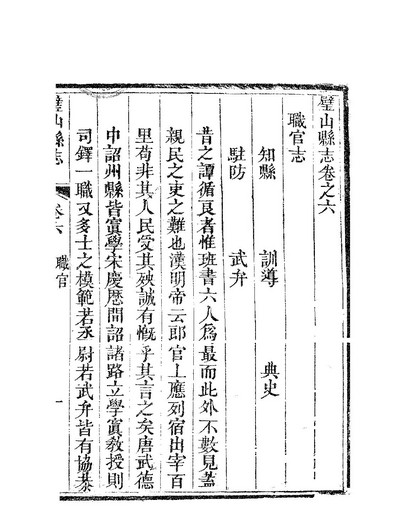 璧山縣志卷之六
職官志
知縣 訓導 典史
駐防 武弁
昔之譚循良者惟班書六人爲最而此外不數見蓋
親民之吏之難也漢明帝云郎官上應列宿出宰百
里苟非其人民受其殃誠有慨乎其言之矣唐武德
中詔州縣皆寘學宋慶歷間詔諸路立學寘教授則
司鐸一職又多士之模範若丞尉若武弁皆有協恭
璧山縣志 卷六 職官 一